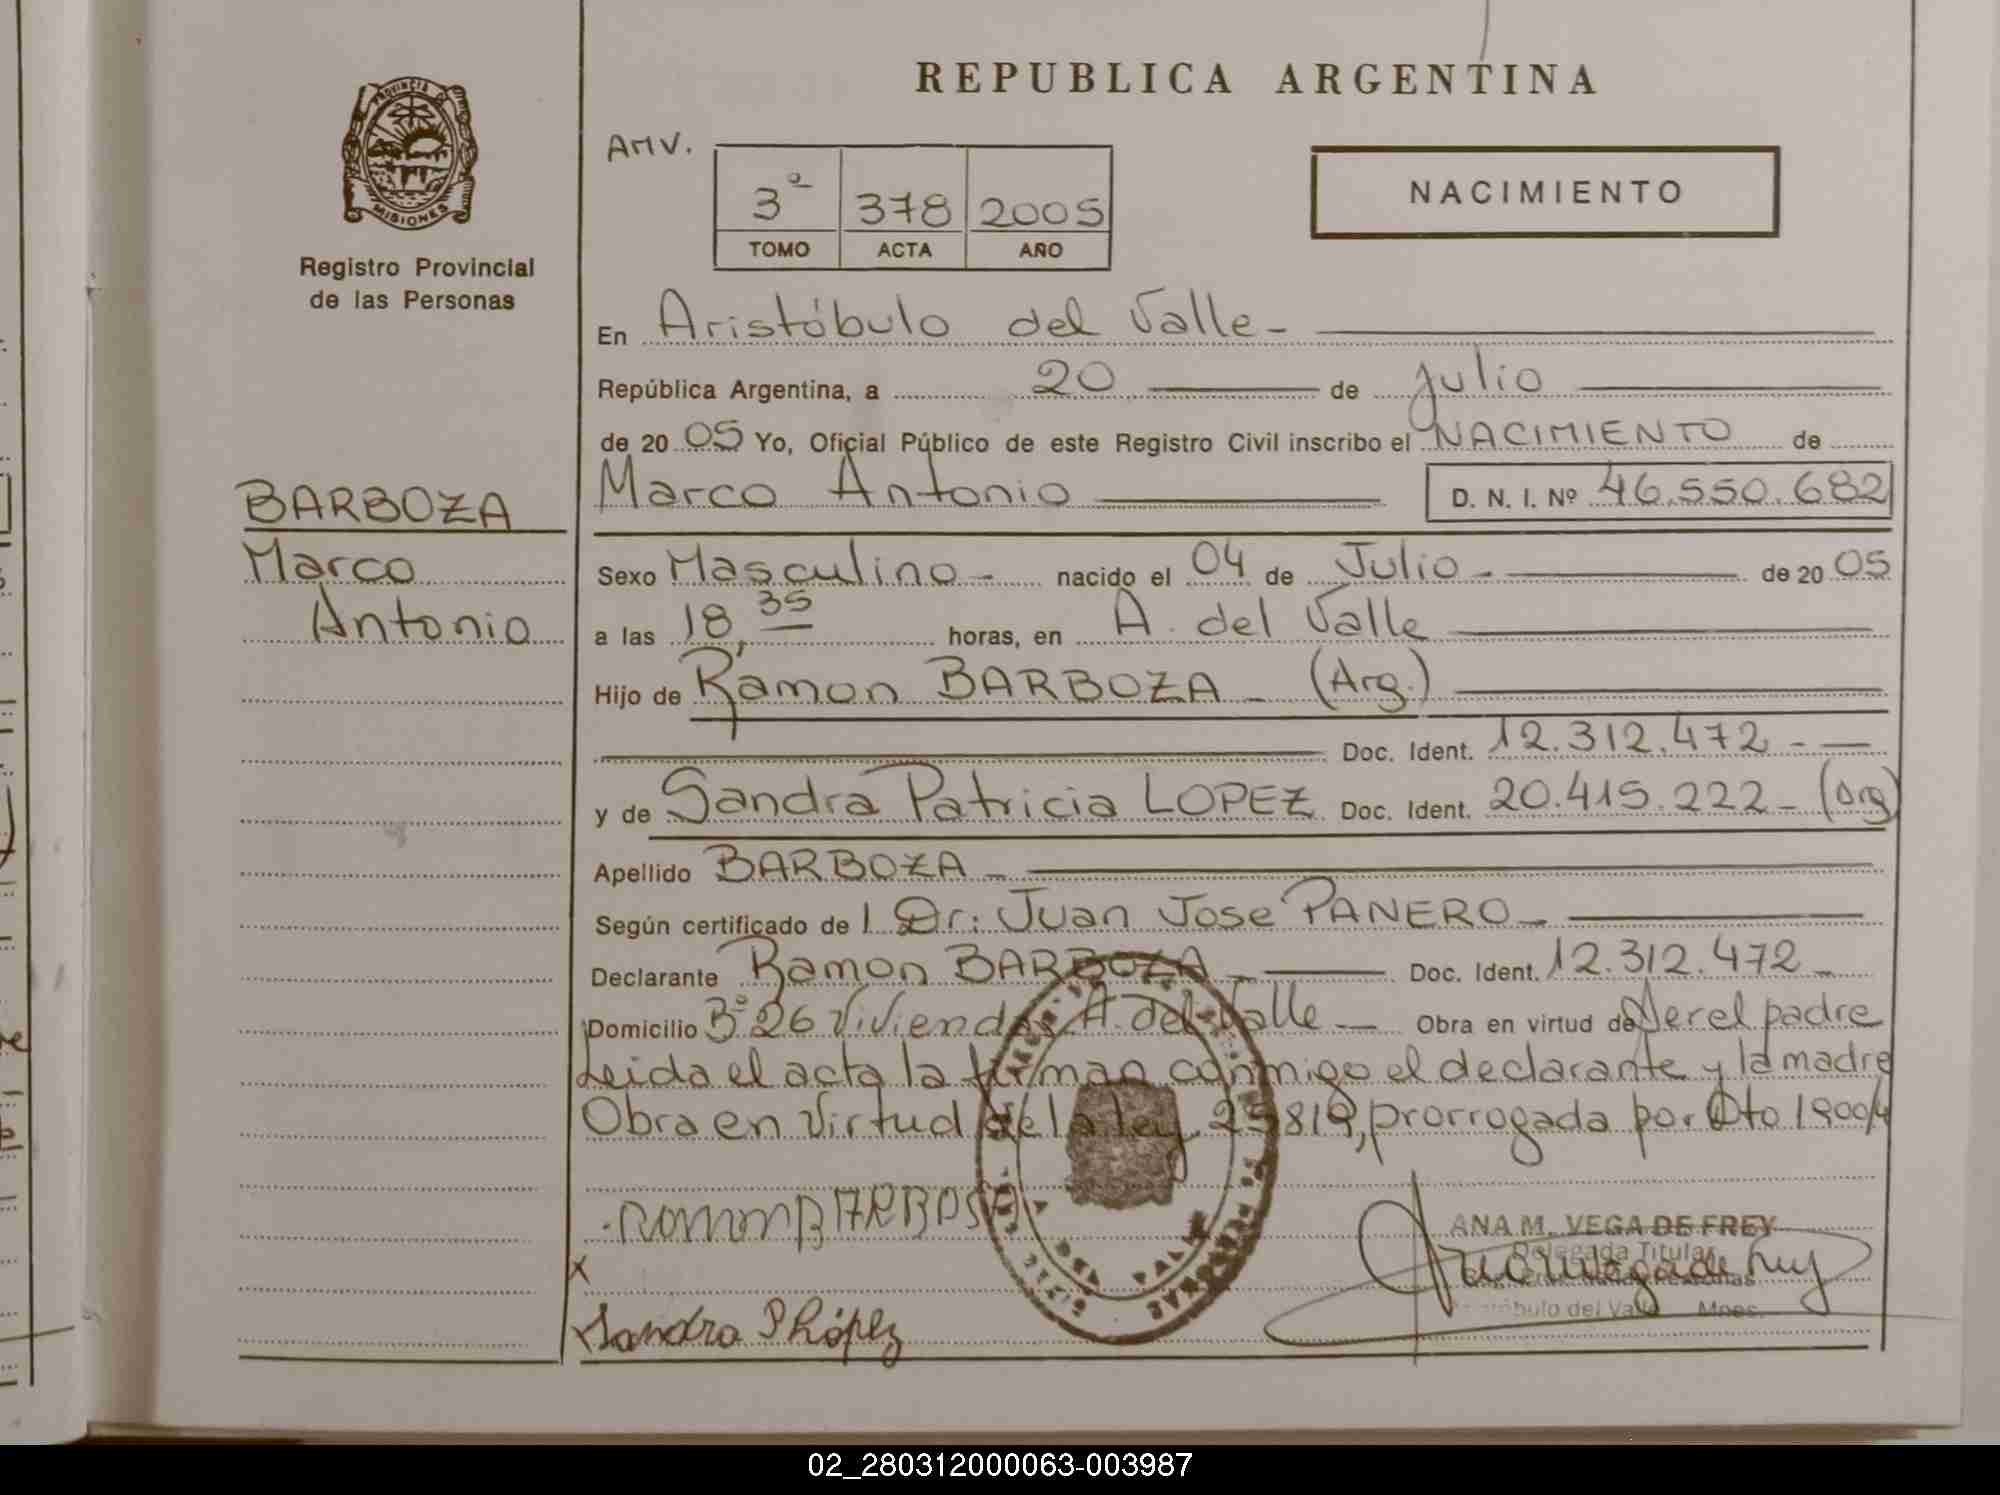 PROVINCIA DE
MISIONES
Registro Provincial
de las Personas
BARBOZA
Marco
Antonio
REPUBLICA ARGENTINA
AMV.
3º 378 2005
TOMO ACTA AÑO
NACIMIENTO
En Aristóbulo del Valle -
República Argentina, a 20 de julio
de 20 05 Yo, Oficial Público de este Registro Civil inscribo el NACIMIENTO de
Marco Antonio D. N. I. Nº 46.550.682
Sexo Masculino - nacido el 04 de Julio - de 20 05
a las 18,35 horas, en A. del Valle
Hijo de Ramon BARBOZA - (Arg.)
Doc. Ident. 12.312.472 - -
y de Sandra Patricia LOPEZ Doc. Ident. 20.415.222 - (Arg)
Apellido BARBOZA -
Según certificado de l Dr: Juan Jose PANERO -
Declarante Ramon BARBOZA - Doc. Ident. 12.312.472 -
Domicilio Bº 26 Viviendas A. del Valle - Obra en virtud de Ser el padre
Leida el acta la firman conmigo el declarante y la madre
Obra en Virtud de la ley 25819, prorrogada por Dto 1900/4
ANA M. VEGA DE FREY
Delegada Titular
Aristóbulo del Valle Mnes.
X
Sandra P López
02_280312000063-003987